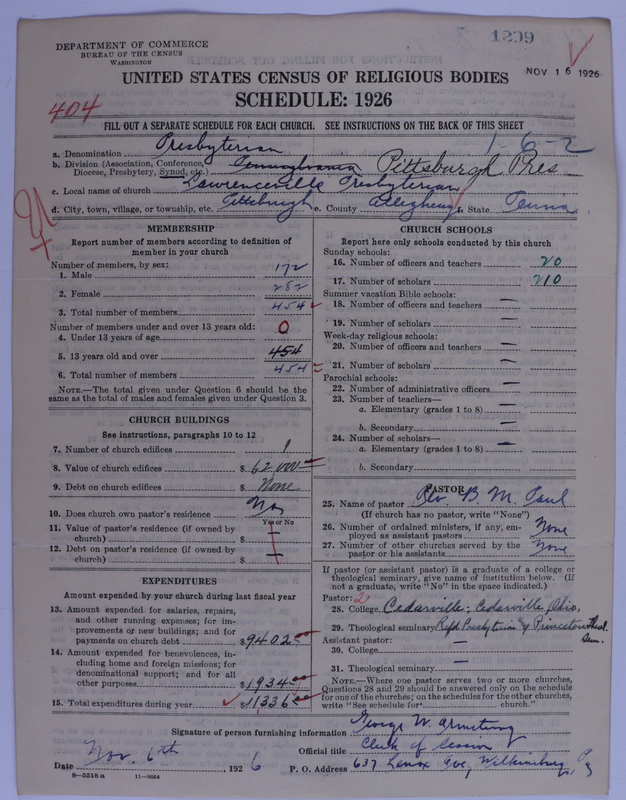 1299
DEPARTMENT OF COMMERCE
BUREAU OF THE CENSUS
WASHINGTON
NOV 16 1926
UNITED STATES CENSUS OF RELIGIOUS BODIES
SCHEDULE: 1926
404
FILL OUT A SEPARATE SCHEDULE FOR EACH CHURCH. SEE INSTRUCTIONS ON THE BACK OF THIS SHEET
1-6-2
a. Denomination Presbyterian
b. Division (Association, Conference, Diocese, Presbytery, Synod, etc.) Pennsylvania Pittsburgh Pres
c. Local name of church Lawrenceville Presbyterian
d. City, town, village, or township, etc. Pittsburgh e. County Allegheny f. State Penna
MEMBERSHIP
Report number of members according to definition of
member in your church
Number of members, by sex:
1. Male 172
2. Female 282
3. Total number of members 454
Number of members under and over 13 years old: 0
4. Under 13 years of age
5. 13 years old and over 454
6. Total number of members 454
NOTE.—The total given under Question 6 should be
same as the total of males and females given under Question 3.
CHURCH BUILDINGS
See instructions, paragraphs 10 to 12
7. Number of church edifices 1
8. Value of church edifices $ 62,000
9. Debt on church edifices $ None
10. Does church own pastor's residence No
Yes or No
11. Value of pastor's residence (if owned by
church) $ —
12. Debt on pastor's residence (if owned by
church) $ —
EXPENDITURES
Amount expended by your church during last fiscal year
13. Amount expended for salaries, repairs,
and other running expenses; for im-
provements or new buildings; and for
payments on church debt $ 9402.00
14. Amount expended for benevolences, in-
cluding home and foreign missions; for
denominational support; and for all
other purposes $ 1934.00
15. Total expenditures during year $ 11336.00
CHURCH SCHOOLS
Report here only schools conducted by this church
Sunday schools:
16. Number of officers and teachers 20
17. Number of scholars 210
Summer vacation Bible schools:
18. Number of officers and teachers —
19. Number of scholars —
Week-day religious schools:
20. Number of officers and teachers —
21. Number of scholars —
Parochial schools:
22. Number of administrative officers —
23. Number of teachers—
a. Elementary (grades 1 to 8) —
b. Secondary —
24. Number of scholars—
a. Elementary (grades 1 to 8) —
b. Secondary
PASTOR
25. Name of pastor Rev B. M. Paul
(If church has no pastor, write "None")
26. Number of ordained ministers, if any, em-
ployed as assistant pastors None
27. Number of other churches served by the
pastor or his assistants None
If pastor (or assistant pastor) is a graduate of a college or
theological seminary, give name of institution below. (If
not a graduate, write "No" in the space indicated.)
Pastor: 2
28. College Cedarville; Cedarville, Ohio.
29. Theological seminary Refd Presbyterian & Princeton Theol. Sem.
Assistant pastor:
30. College —
31. Theological seminary —
NOTE.—Where one pastor serves two or more churches,
Questions 28 and 29 should be answered only on the schedule
for one of the churches; on the schedules for the other churches,
write "See schedule for church."
Signature of person furnishing information George W. Armstrong
Official title Clerk of Session
Date Nov. 6th, 1926 P. O. Address 637 Lenox Ave, Wilkinsburg, Pa
8-5518a 11-9054